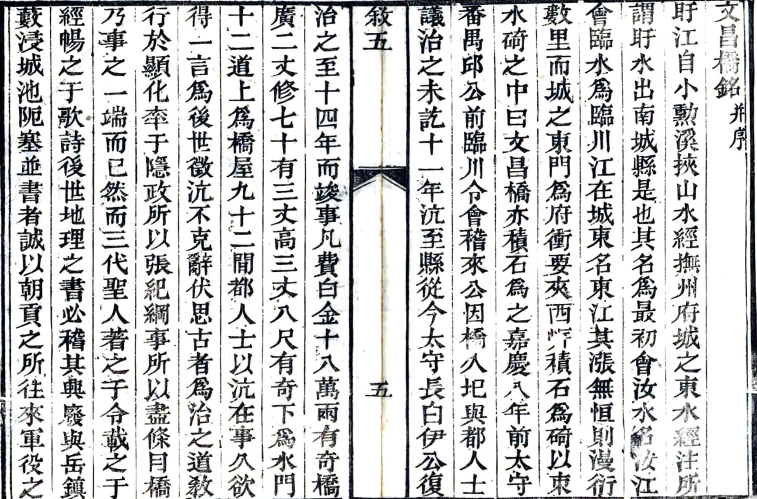 文昌橋銘 并序
盱江自小勲溪挾山水經撫州府城之東水經注所
謂盱水出南城縣是也其名爲最初會汝水名汝江
會臨水爲臨川江在城東名東江其漲無恒則漫衍
數里而城之東門爲府衝要夾西岸積石爲碕以束
水碕之中曰文昌橋亦積石爲之嘉慶八年前太守
番禺邱公前臨川令會稽來公因橋久圮與都人士
議治之未訖十一年沆至縣從今太守長白伊公復
敘五
五
治之至十四年而竣事凡費白金十八萬兩有奇橋
廣二丈修七十有三丈高三丈八尺有奇下爲水門
十二道上爲橋屋九十二間都人士以沆在事久欲
得一言爲後世徵沆不克辭伏思古者爲治之道敎
行於顯化牽于隱政所以張紀綱事所以盡條目橋
乃事之一端而已然而三代聖人著之于令載之于
經暢之于歌詩後世地理之書必稽其興廢與岳鎮
藪浸城池阨塞並書者誠以朝貢之所往來軍役之